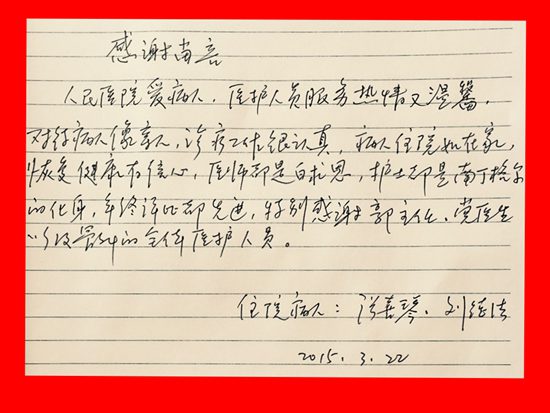 感谢留言
人民医院爱病人，医护人员服务热情又温馨，
对待病人像亲人，诊疗工作很认真，病人住院如在家，
恢复健康有信心，医师都是白求恩，护士都是南丁格尔
的化身，年终评比都先进，特别感谢郭主任、党医生
以及骨科的全体医护人员。
住院病人：张喜琴、刘德法
2015.3.22